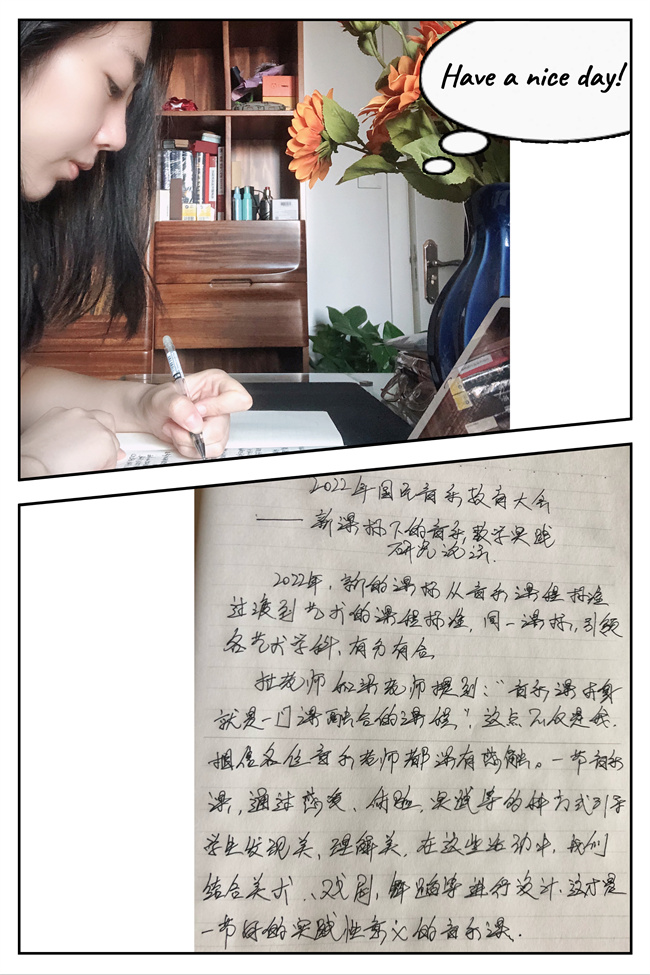 Have a nice day!
2022年国民音乐教育大会
——新课标下的音乐教学实践
研究论坛.
2022年,新的课标从音乐课程标准
过渡到艺术的课程标准,同一课标,引领
各艺术学科,有分有合。
杜老师和梁老师提到:“音乐课本身
就是一门课融合的课程”,这点不仅是我.
相信各位音乐老师都深有感触。一节音乐
课,通过感受、体验、实践等的种方式引导
学生发现美、理解美,在这些活动中,我们
结合美术、戏剧,舞蹈等进行设计.这才是
一节好的实践性意义的音乐课.